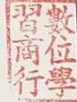 數位學
習商行